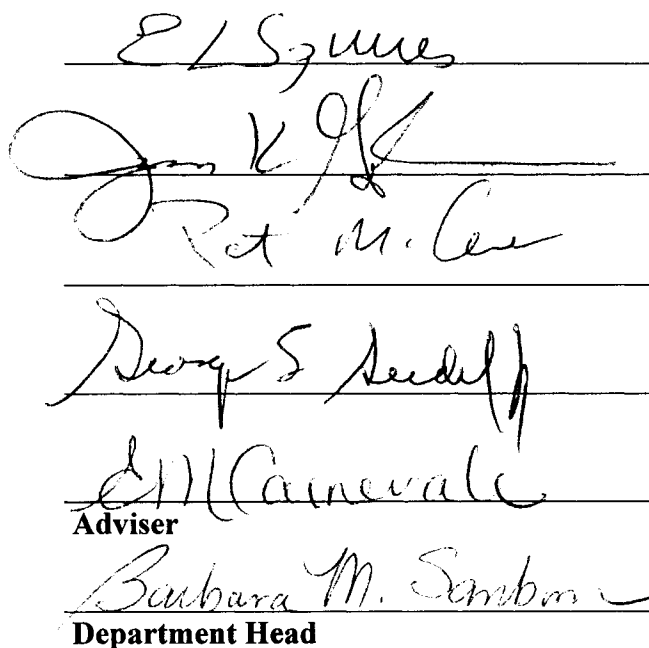 E L Squires
K
Pat M. Cue
George E Seidel Jr
E M Carnevale
Adviser
Barbara M. Sanborn
Department Head